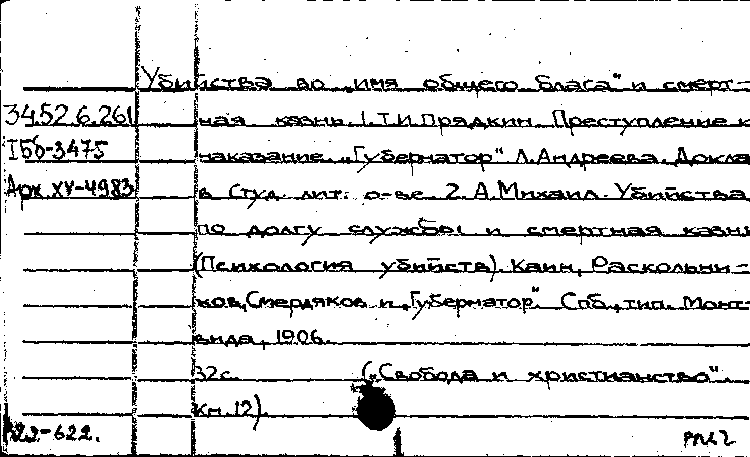 Убийства во „имя общего блага" и смерт-
34.52.6.261 ная казнь. 1. Т.И.Прядкин. Преступление и
I 5б-3475 наказание. „Губернатор" Л.Андреева. Докла
Арх XV-4983 в студ. лит. о-ве. 2. А.Михаил. Убийства
по долгу службы и смертная казнь
(Психология убийств). Каин, Раскольни-
ков, Смердяков и „Губернатор". Спб., тип. Монт-
вида, 1906.
32с. („Свобода и христианство".
Кн.12).
622.